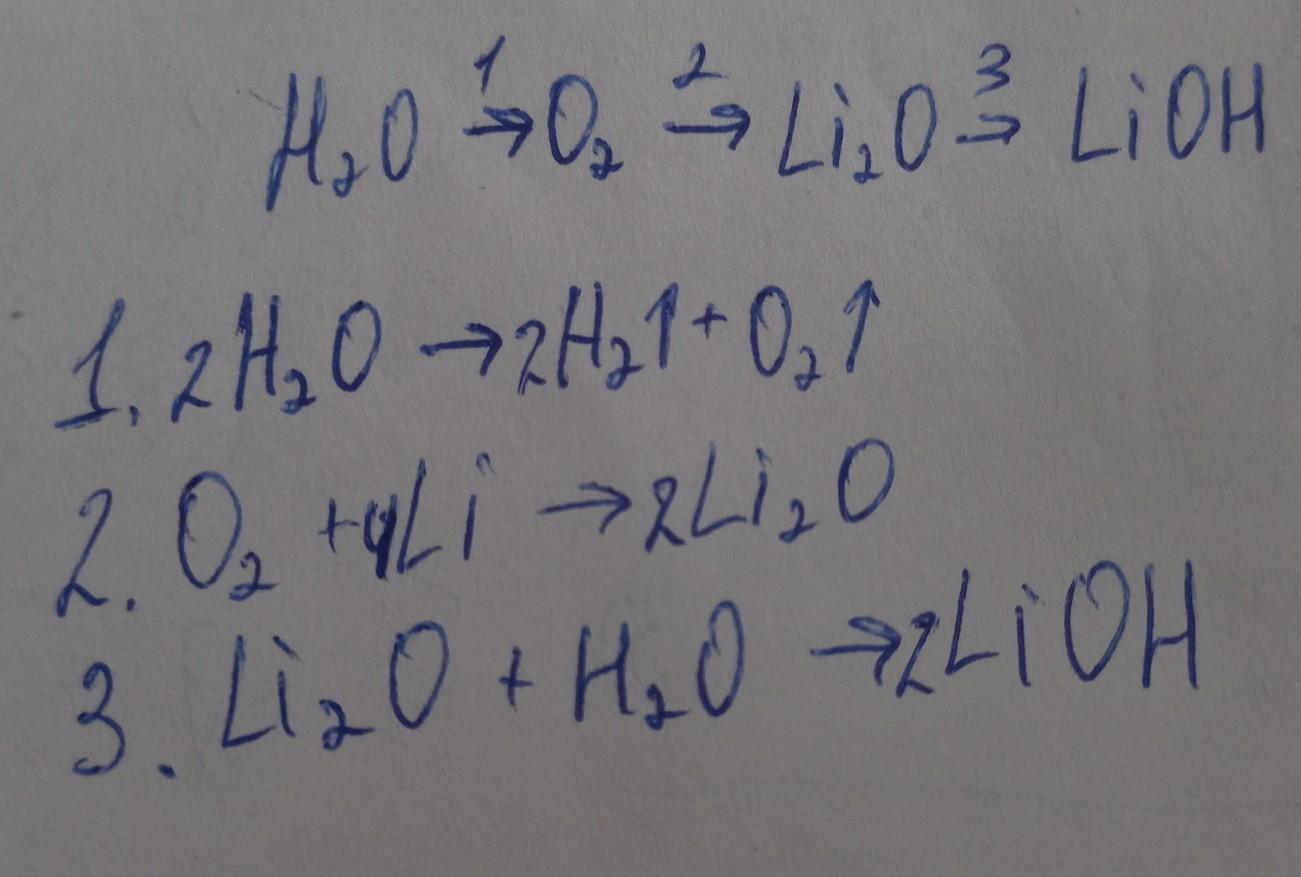 H₂O →¹ O₂ →² Li₂O →³ LiOH
1. 2H₂O → 2H₂↑ + O₂↑
2. O₂ + 4Li → 2Li₂O
3. Li₂O + H₂O → 2LiOH